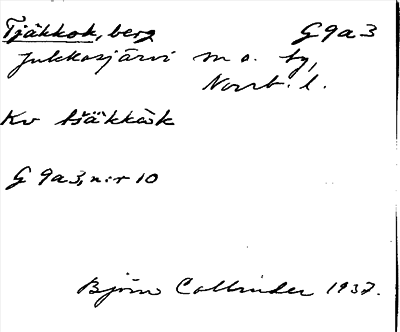 Tjåkkok, berg G 9a 3
Jukkasjärvi sn o. by,
Norrb. l.
Kv tšäkkòk
G 9a3, n:r 10
Björn Collinder 1937.